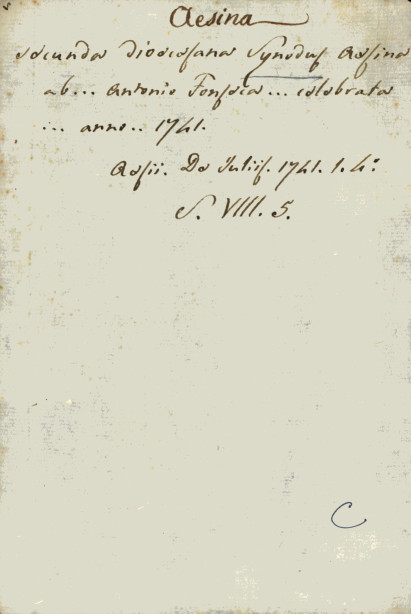 Aesina
secunda dioecesana Synodus Aesina
ab... Antonio Fonseca... celebrata
... anno.. 1741.
Aesii. De Juliis. 1741. 1. 4°
S. VIII. 5.
C